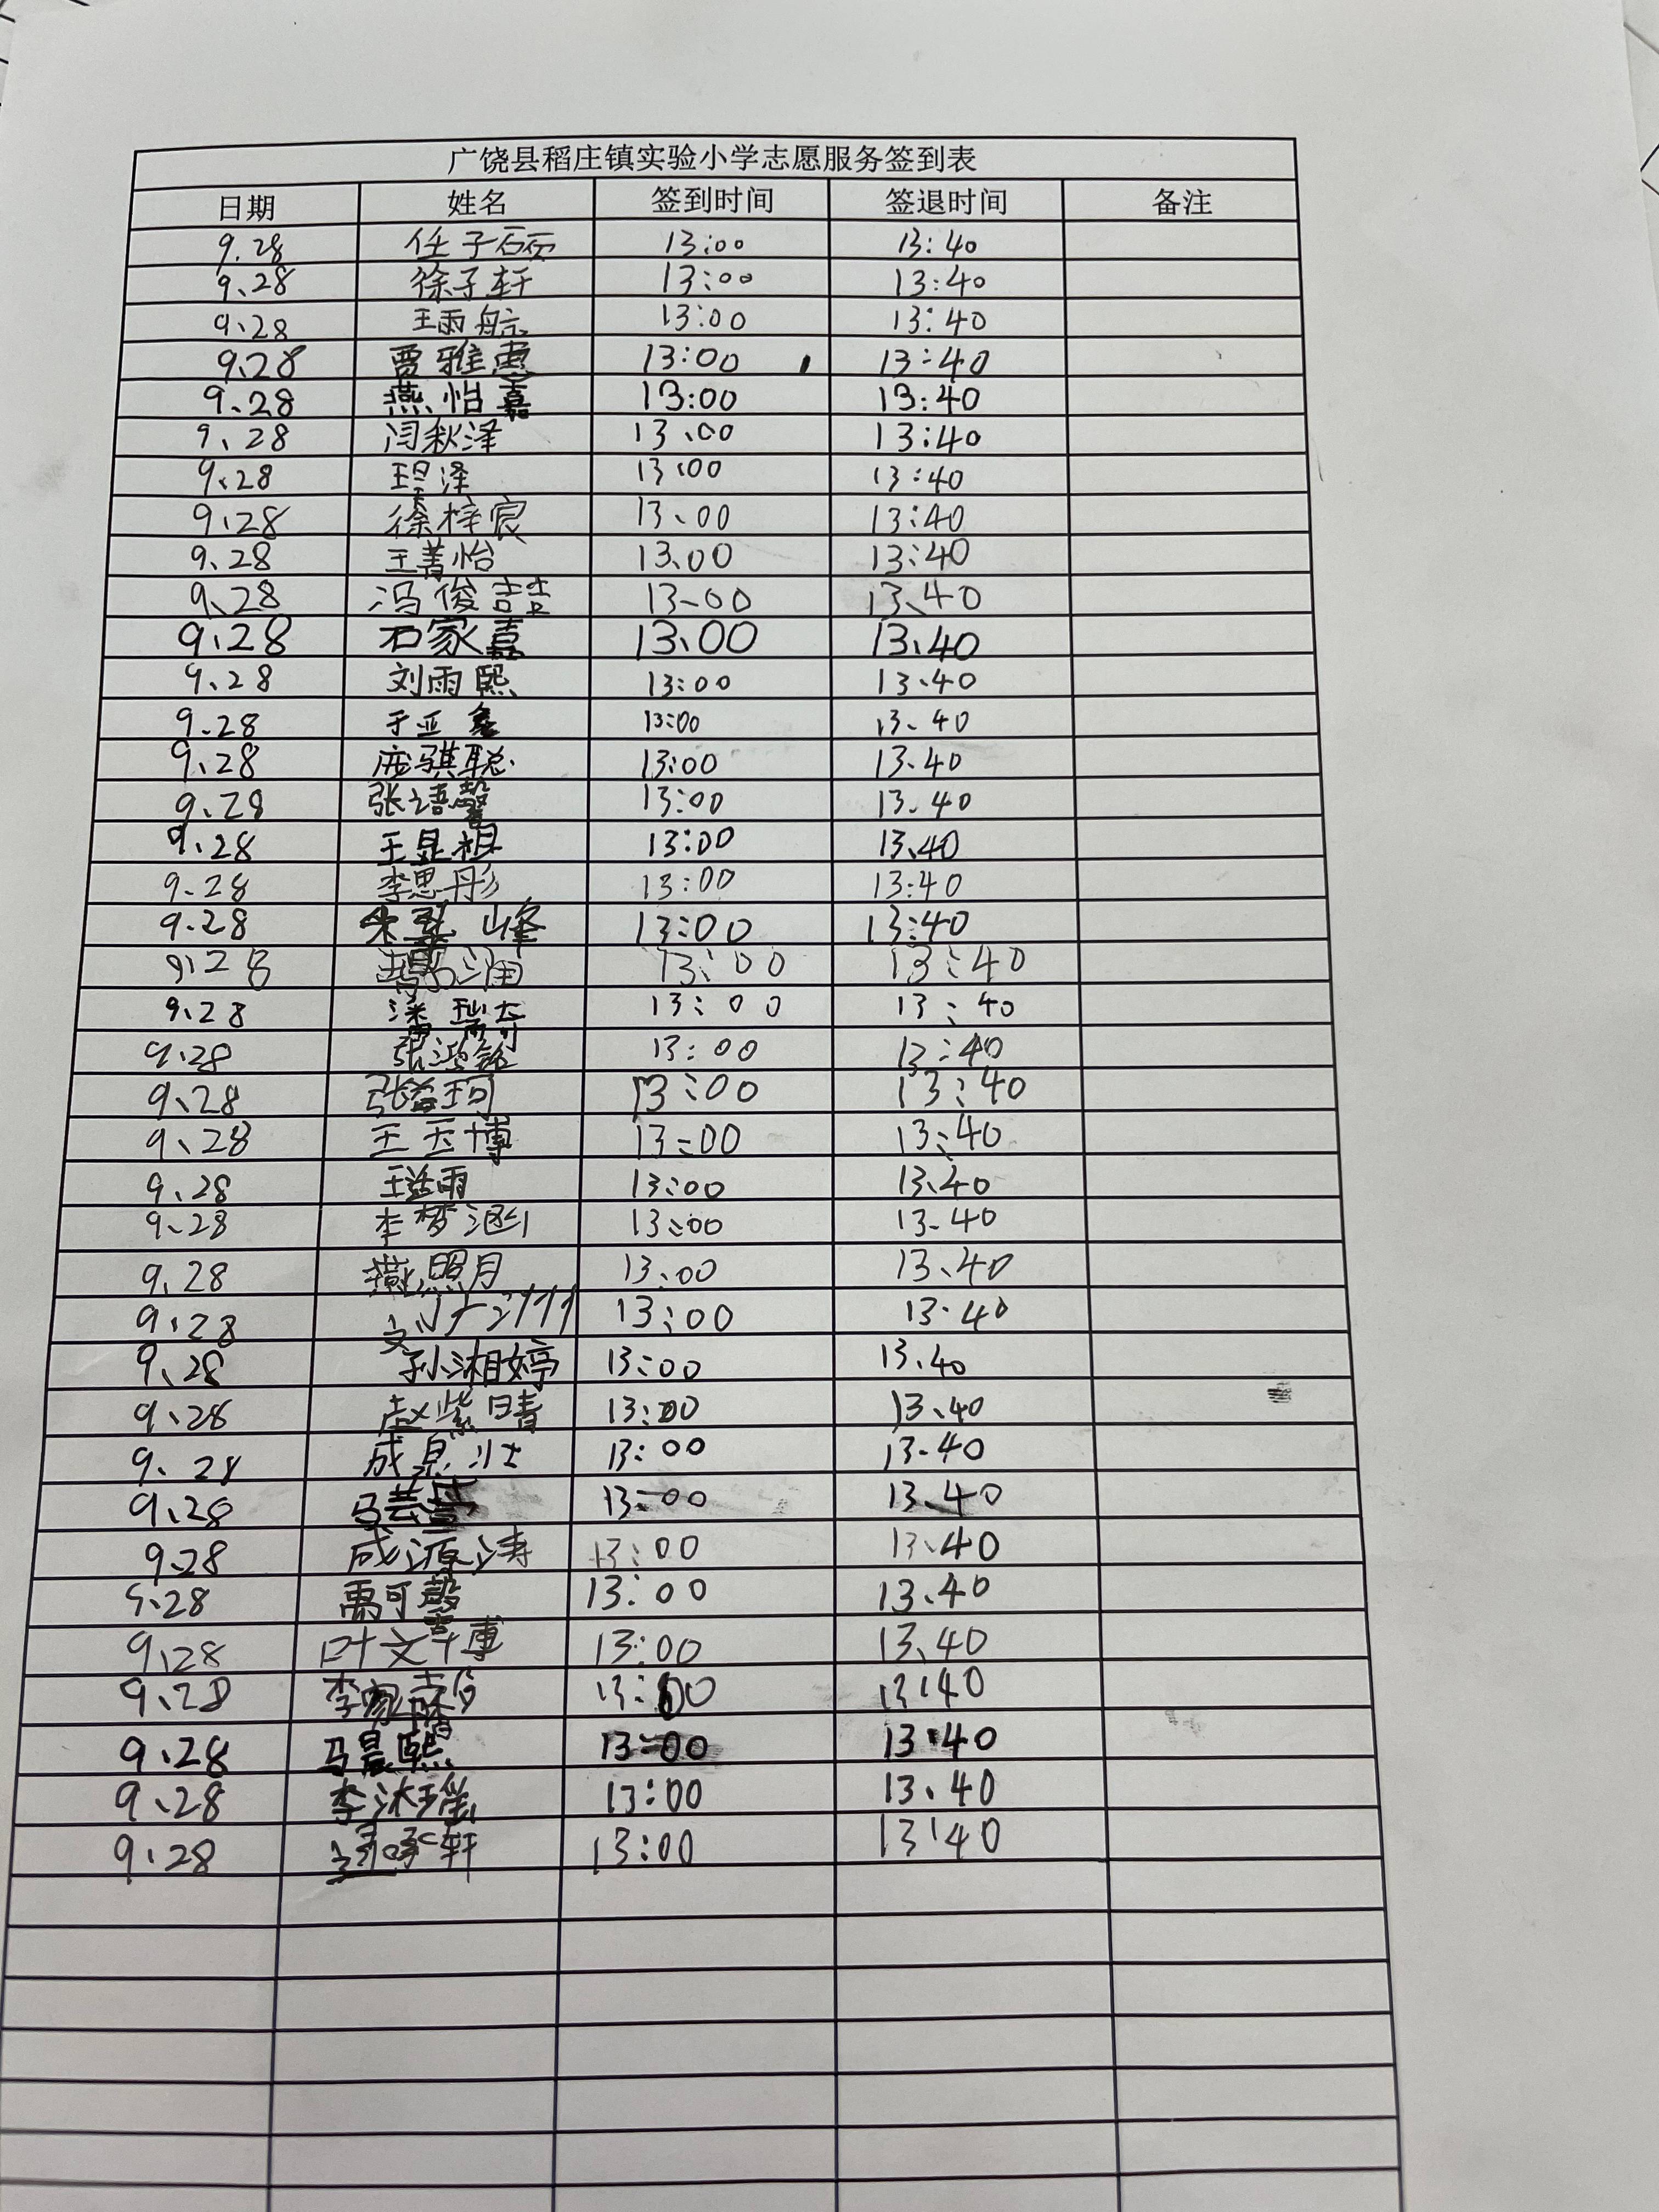 广饶县稻庄镇实验小学志愿服务签到表
日期 姓名 签到时间 签退时间 备注
9.28 任子硕 13:00 13:40
9.28 徐子轩 13:00 13:40
9.28 王雨航 13:00 13:40
9.28 贾雅惠 13:00 13:40
9.28 燕怡嘉 13:00 13:40
9.28 闫秋泽 13.00 13:40
9.28 泽 13:00 13:40
9.28 徐梓宸 13.00 13:40
9.28 王菁怡 13.00 13:40
9.28 冯俊喆 13.00 13.40
9.28 石家嘉 13.00 13.40
9.28 刘雨熙 13:00 13.40
9.28 于亚 13:00 13.40
9.28 庞骐聪 13:00 13.40
9.28 张语馨 13:00 13.40
9.28 王显祖 13:00 13.40
9.28 李思彤 13:00 13:40
9.28 峰 13:00 13:40
9.28 13:00 13:40
9.28 13:00 13:40
9.28 张鸿铭 13:00 13:40
9.28 张益珂 13:00 13:40
9.28 王玉博 13:00 13:40
9.28 雨 13:00 13.40
9.28 李梦涵 13:00 13.40
9.28 燕照月 13:00 13.40
9.28 13:00 13.40
9.28 孙湘婷 13:00 13.40
9.28 赵紫晴 13:00 13.40
9.28 成 13:00 13.40
9.28 马芸 13:00 13.40
9.28 成源涛 13:00 13.40
9.28 禹可馨 13:00 13.40
9.28 叶文博 13:00 13.40
9.28 李家 13:00 13:40
9.28 马晨熙 13:00 13:40
9.28 李沐瑶 13:00 13.40
9.28 轩 13:00 13:40